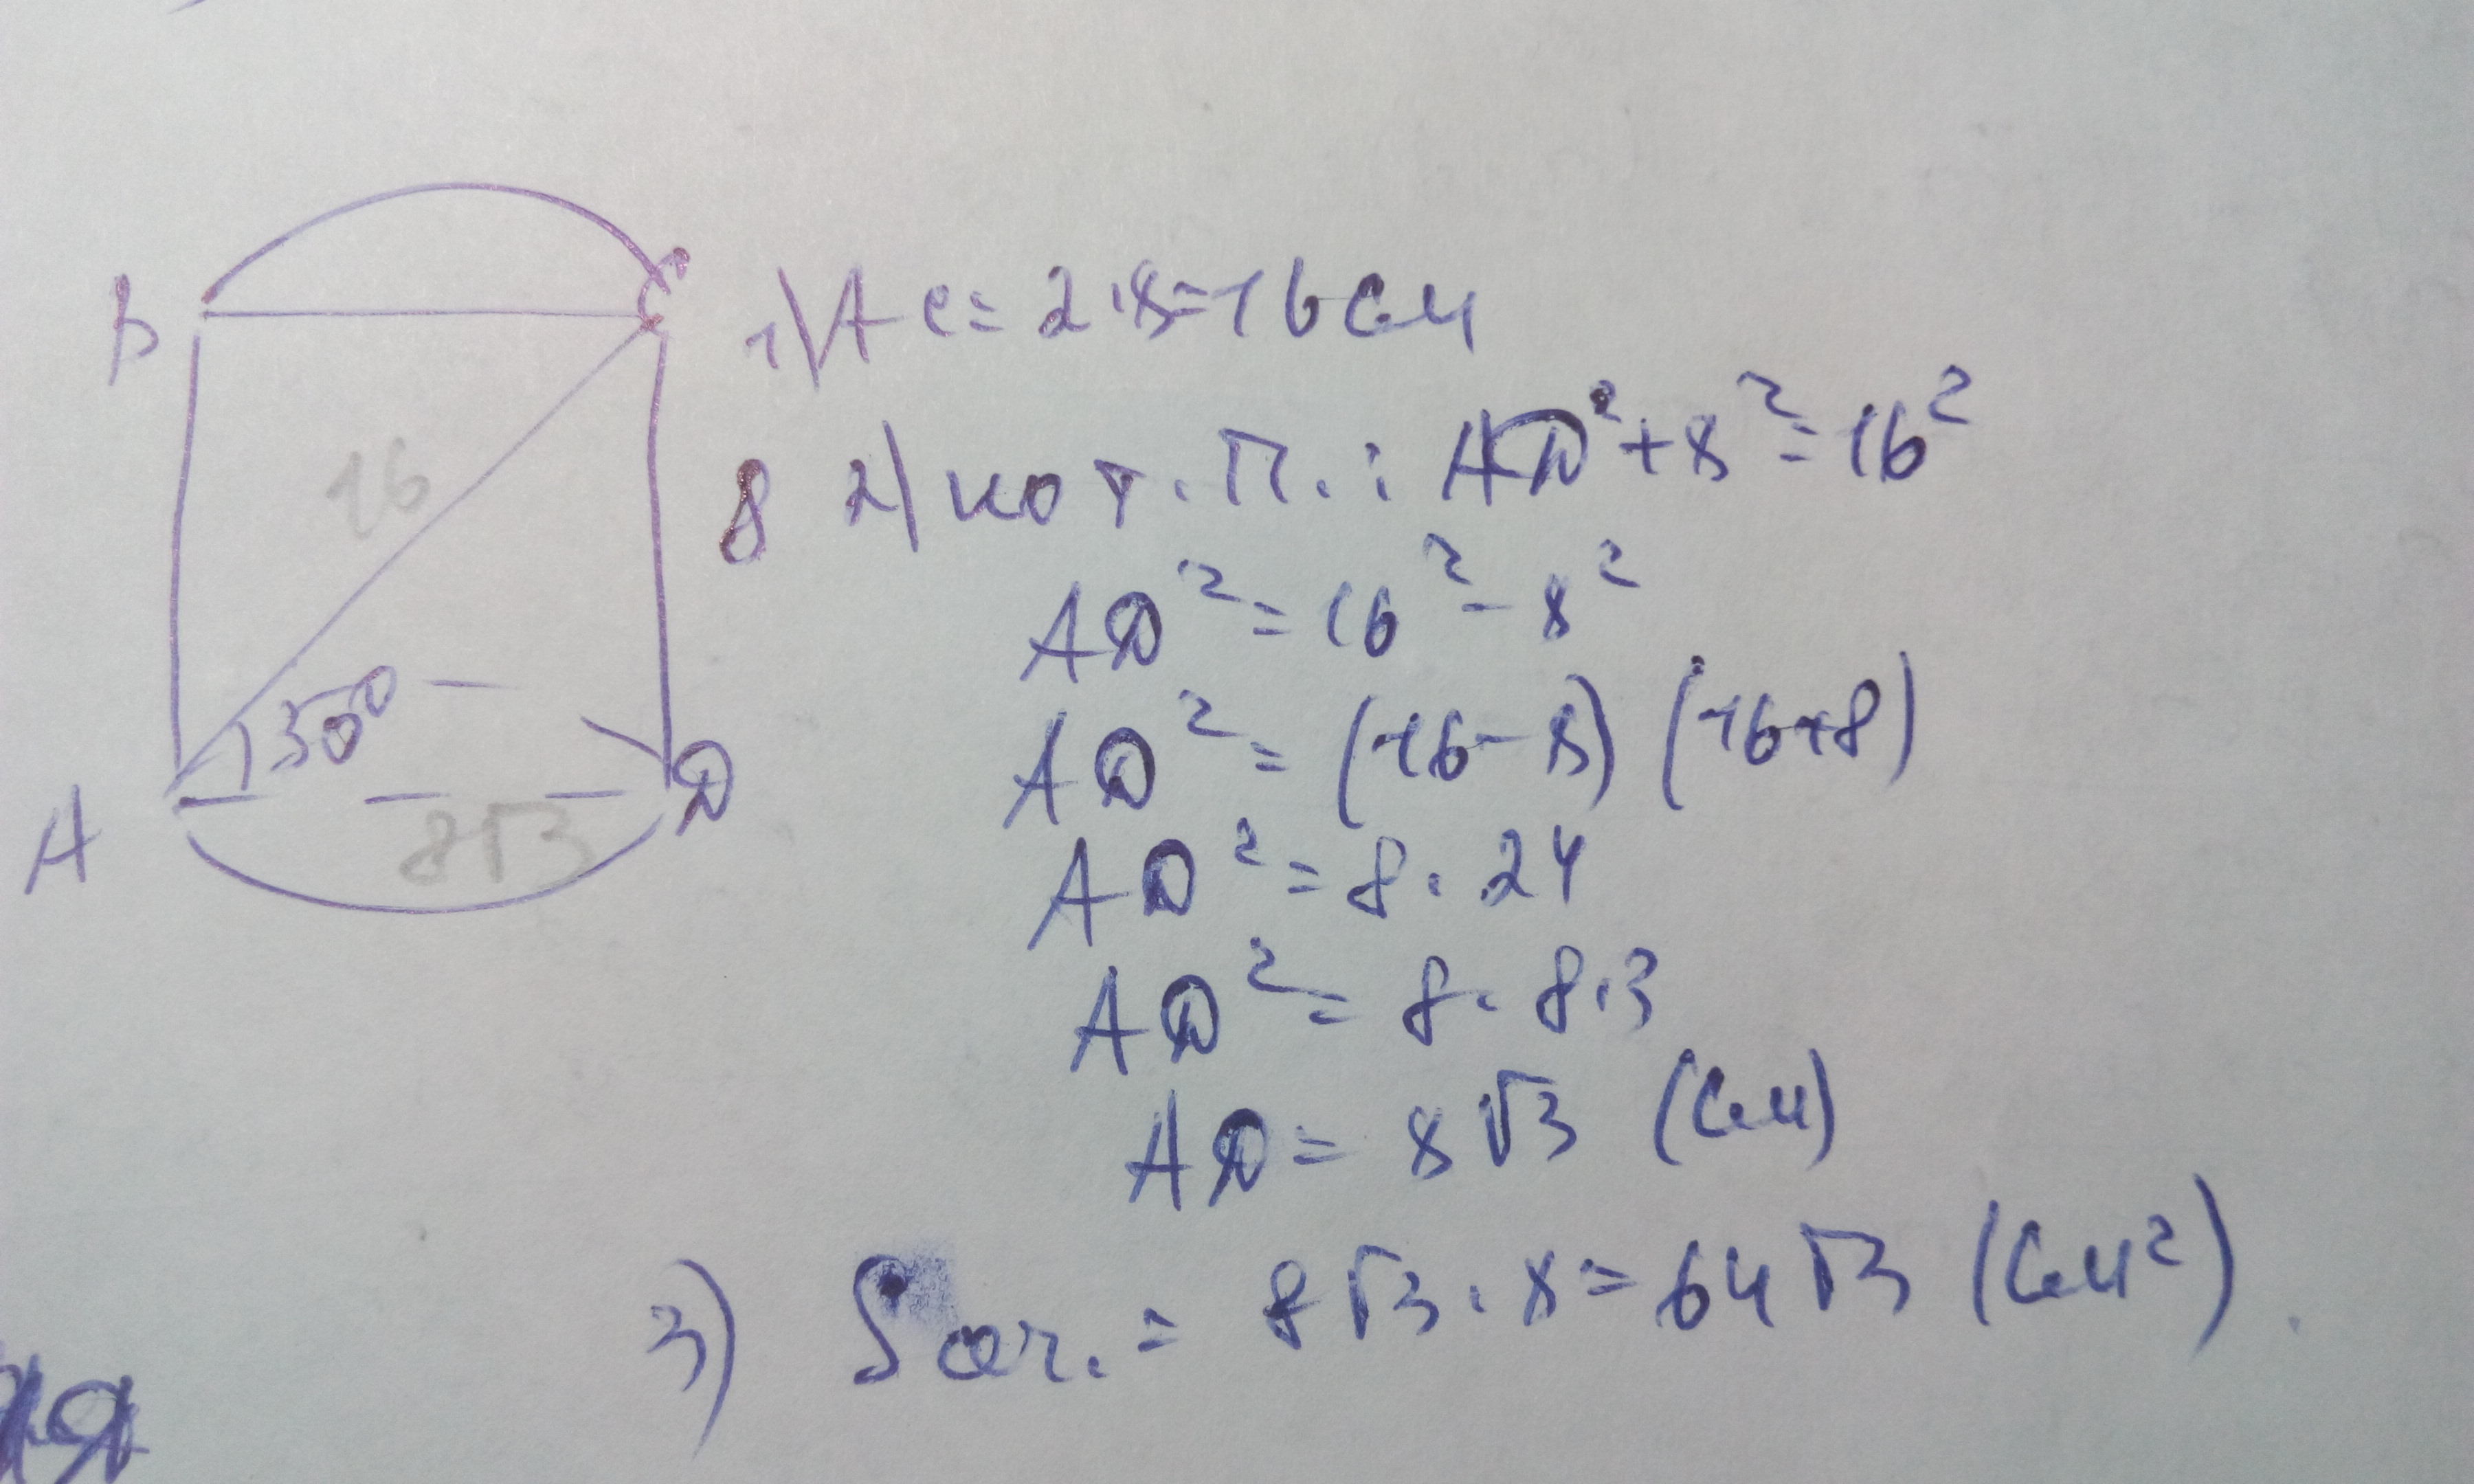 B
C
16
30°
A
8√3
D
8
1) AC = 2·8=16 см
2) по т. П.: AD²+8²=16²
AD²=16²-8²
AD²=(16-8)(16+8)
AD²=8·24
AD²=8·8·3
AD=8√3 (см)
3) S = 8√3·8=64√3 (см²).